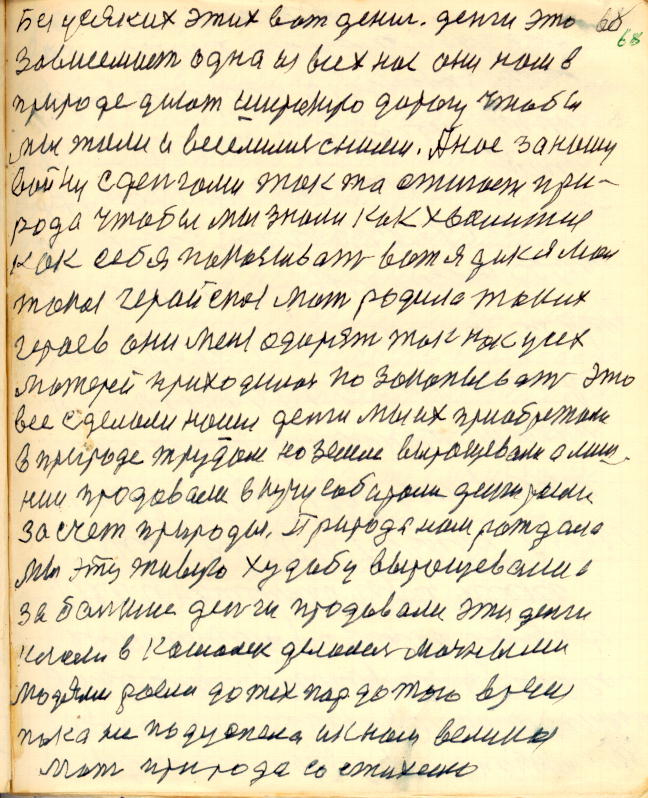 Без усяких этих вот денег. денги это 68
68
Зависемост одна из всех нас они нам в
природе дают широкую дорогу чтобы
мы жили и веселилися сними. А нас за нашу
войну сденгами так та стигает при-
рода чтобы мы знали как хвалится
как себя показывать вот я дикя мол
герайска мат родила таких
героев они мене одарят так как усех
матерей приходилос по закапывать это
все сделали наши денги мы их приобретали
в природе трудом на земле выращевали а лиш-
нии продовали вкучу собирали денги
за счет природы. Природа нам рождала
мы эту живую худобу выращевали и
за болшие денги продовали эти денги
клали в кошолек делалис мочными
людями росли до тех пор до того время
пока не подуспела к нам велика
мат природа со стихею